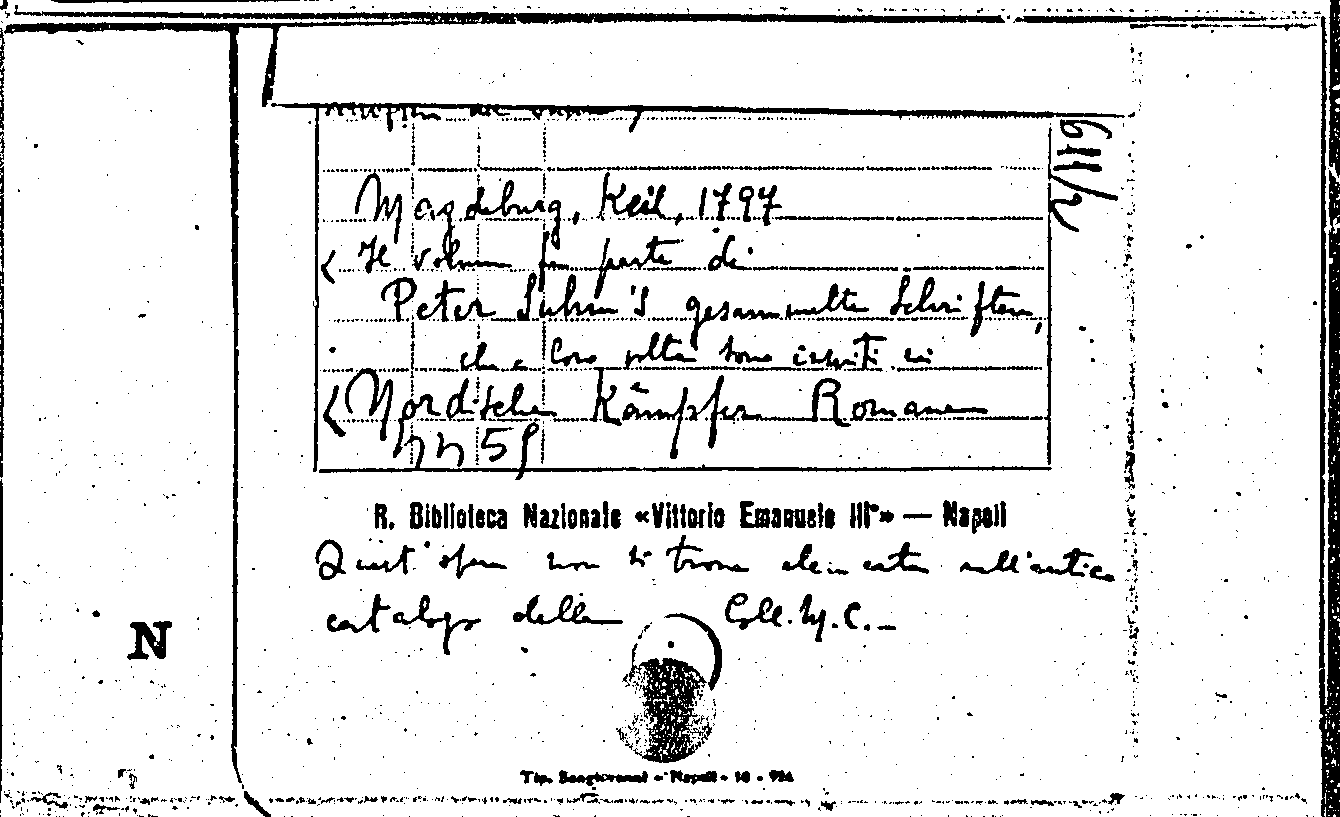 Magdeburg, Keil, 1797
< Il volume fa parte di
Peter Suhm's gesammelte Schriften,
che a loro volta sono inseriti in
< Nordische Kämpfer Romane
R. Biblioteca Nazionale «Vittorio Emanuele III°» — Napoli
Quest'opera non si trova elencata nell'antico
catalogo della Coll. M. C. -
N
Tip. Sangiovanni - Napoli - 10 - 934